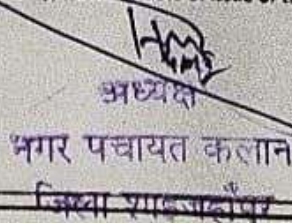 अध्यक्ष
नगर पंचायत कलान
जिला शाहजहाँपुर